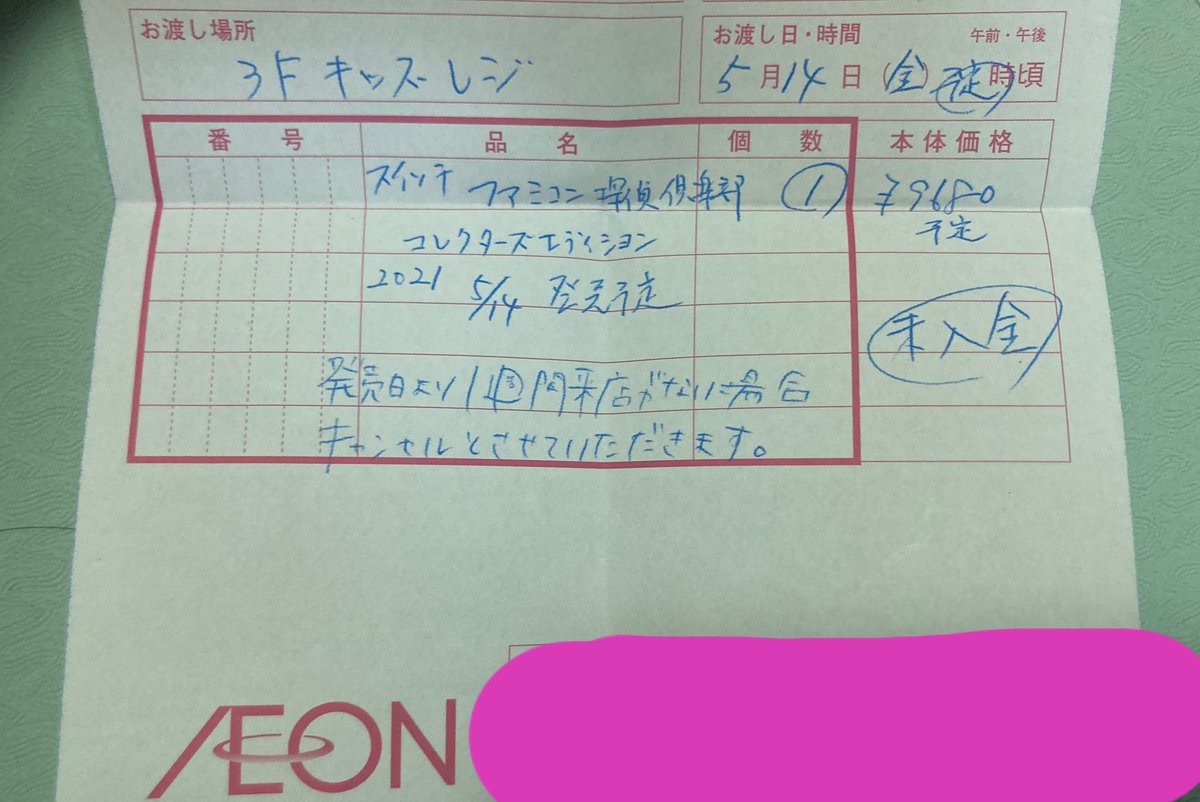 お渡し場所
3F キッズレジ
お渡し日・時間 午前・午後
5月14日(金)予定時頃
番号 品名 個数 本体価格
スイッチ ファミコン探偵倶楽部 1 ¥9680
コレクターズエディション 予定
2021 5/14 発売予定
未入金
発売日より1週間来店がない場合
キャンセルとさせていただきます。
ÆON